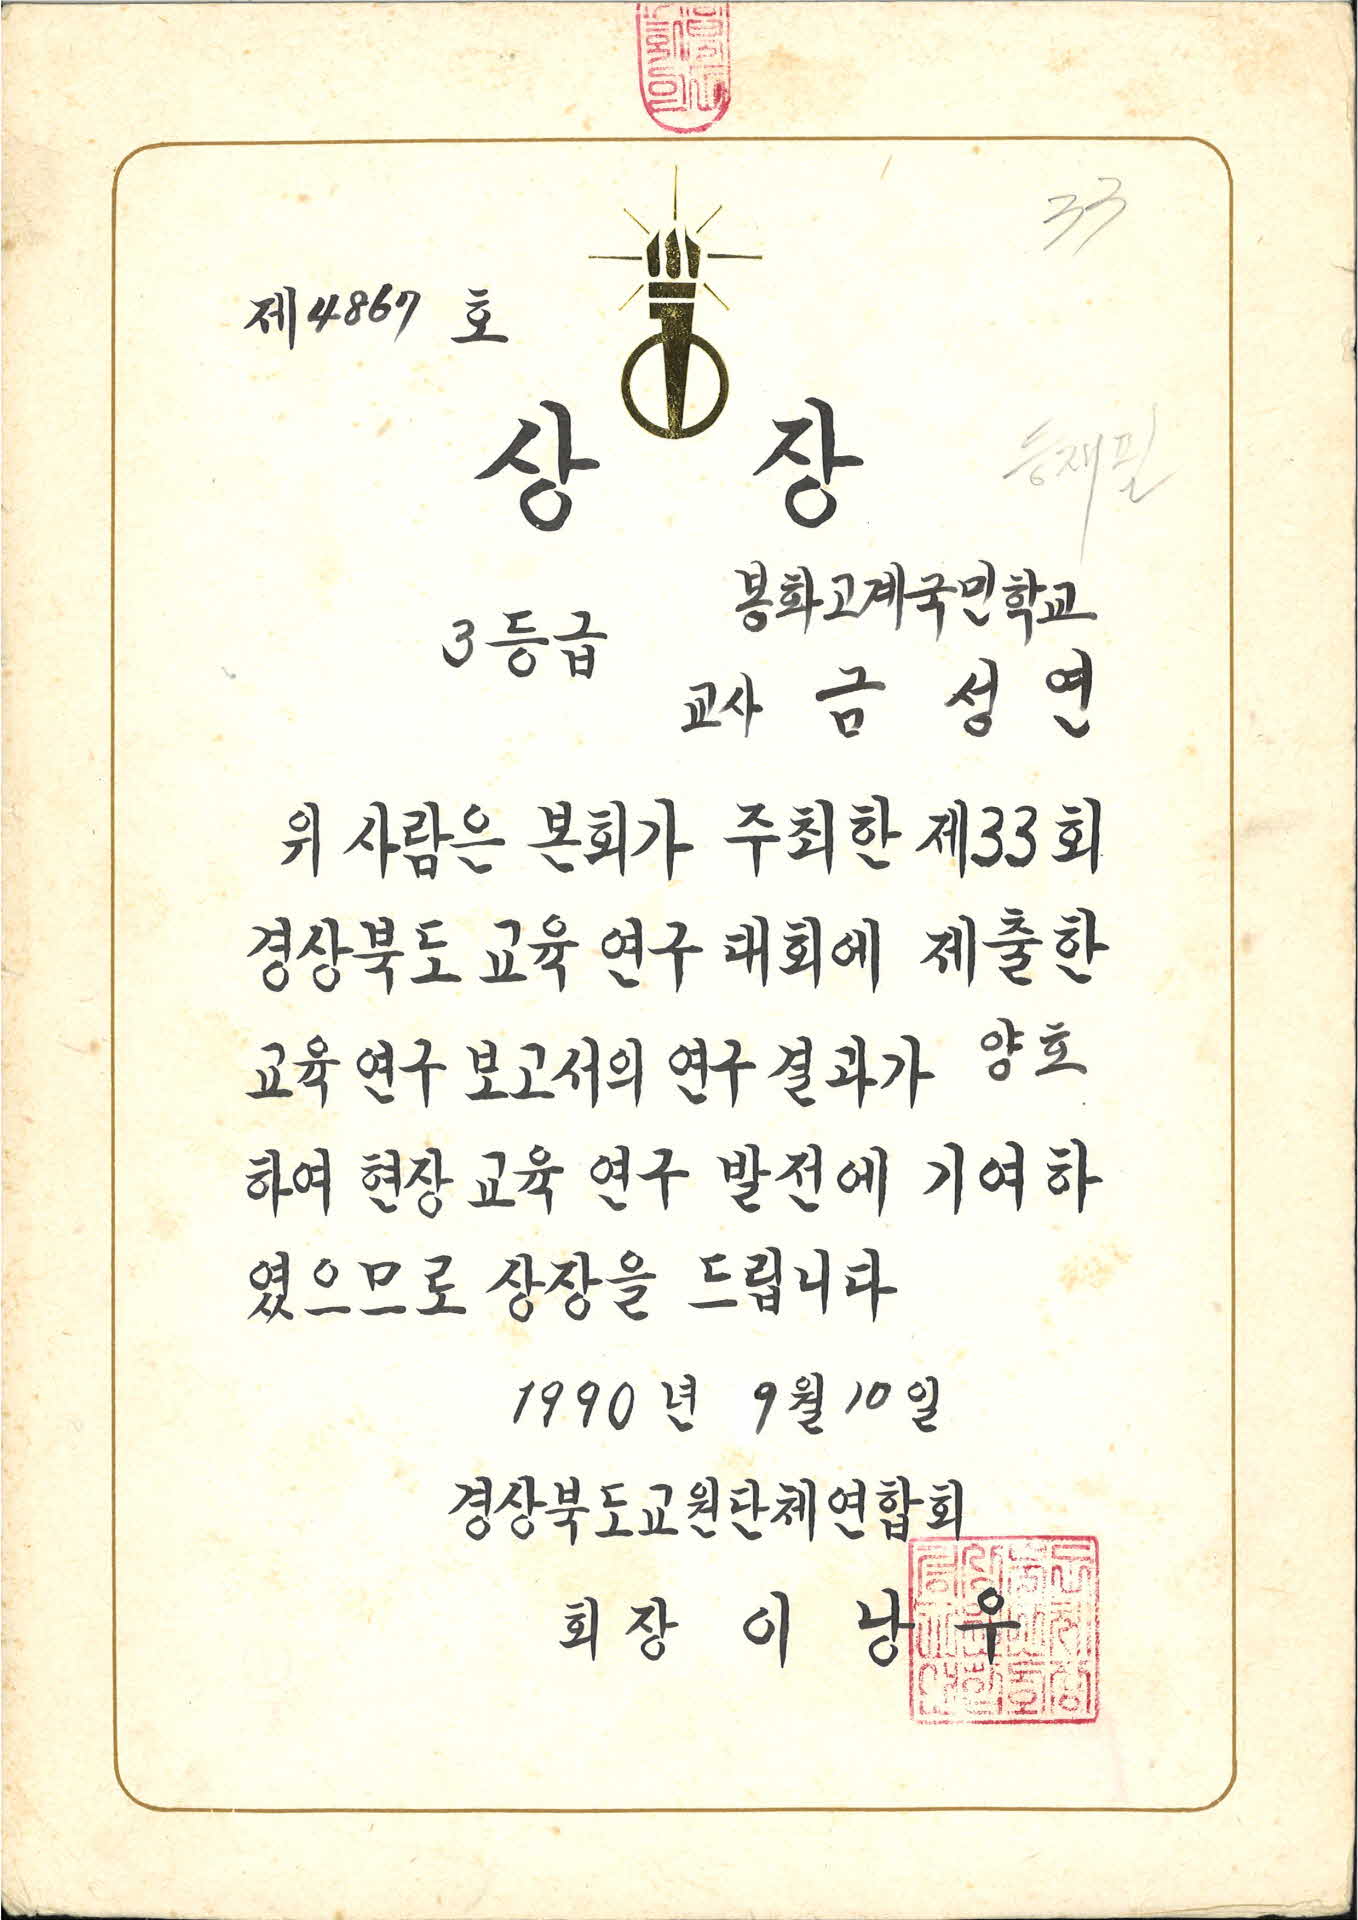 33
제4867 호
상 장
등재필
봉화고계국민학교
3등급
교사 금 성 연
위 사람은 본회가 주최한 제33회
경상북도 교육 연구 대회에 제출한
교육 연구 보고서의 연구 결과가 양호
하여 현장 교육 연구 발전에 기여하
였으므로 상장을 드립니다
1990년 9월 10일
경상북도교원단체연합회
회장 이 낭 우